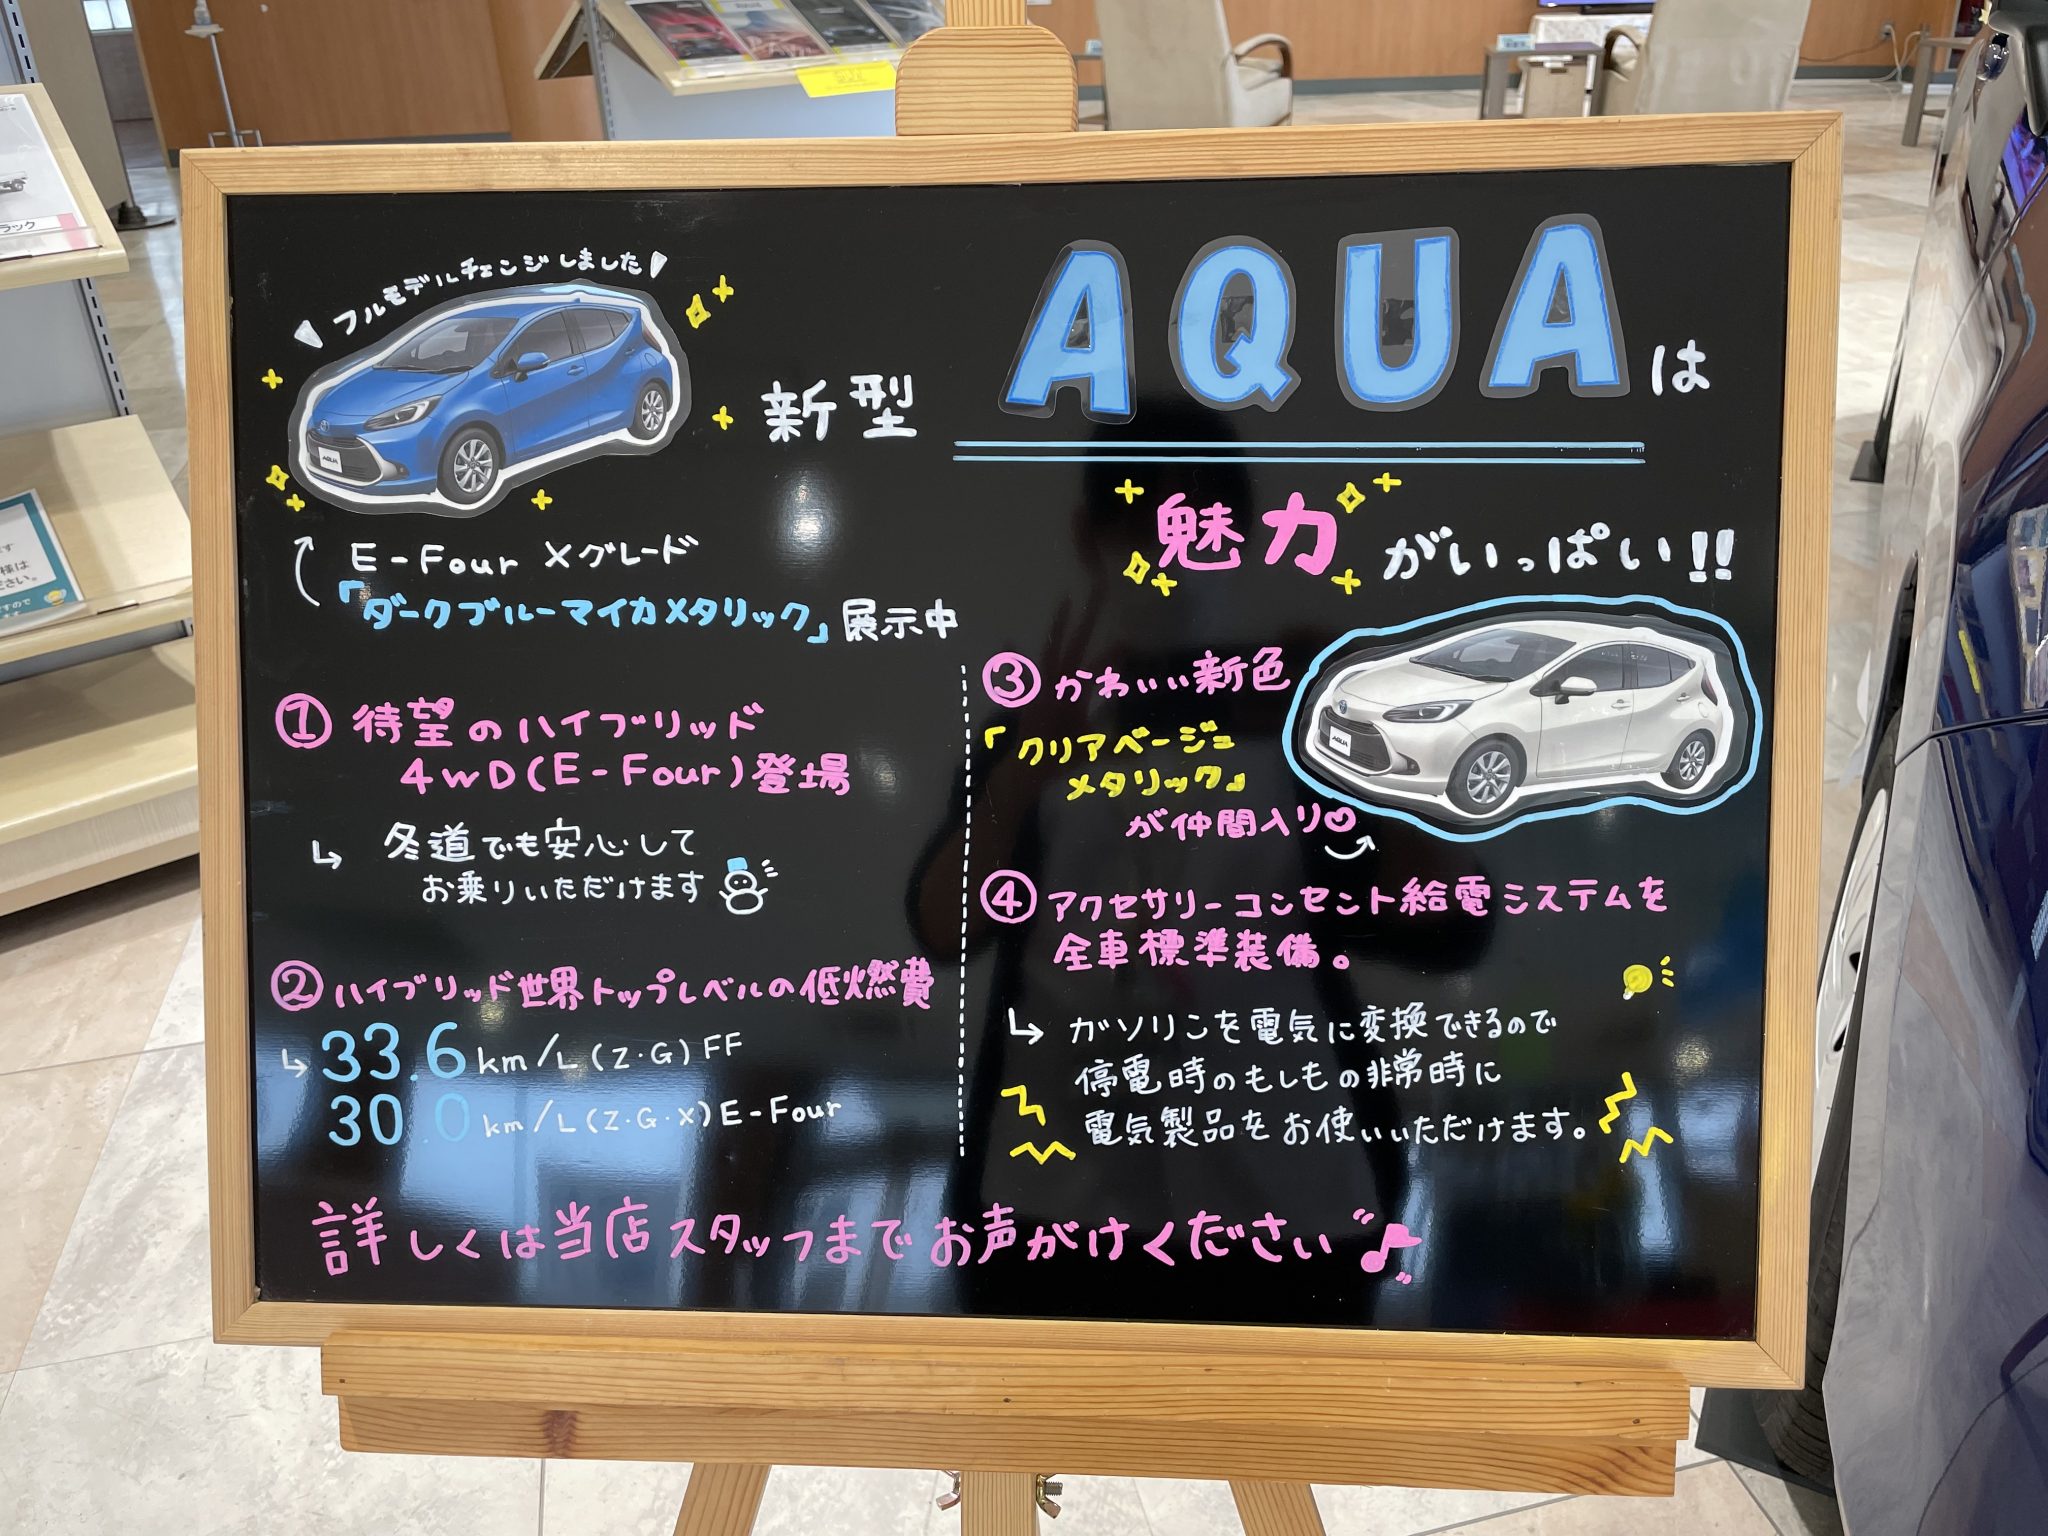 フルモデルチェンジしました
新型 AQUA は
魅力がいっぱい!!
AQUA
E-Four Xグレード
「ダークブルーマイカメタリック」展示中
① 待望のハイブリッド
4WD(E-Four)登場
↳ 冬道でも安心して
お乗りいただけます
② ハイブリッド世界トップレベルの低燃費
↳ 33.6 km/L(Z・G)FF
30.0 km/L(Z・G・X)E-Four
③ かわいい新色
「クリアベージュ
メタリック」
が仲間入り♡
AQUA
④ アクセサリーコンセント給電システムを
全車標準装備。
↳ ガソリンを電気に変換できるので
停電時のもしもの非常時に
電気製品をお使いいただけます。
詳しくは当店スタッフまでお声がけください♪
ラック
様は
ださい。